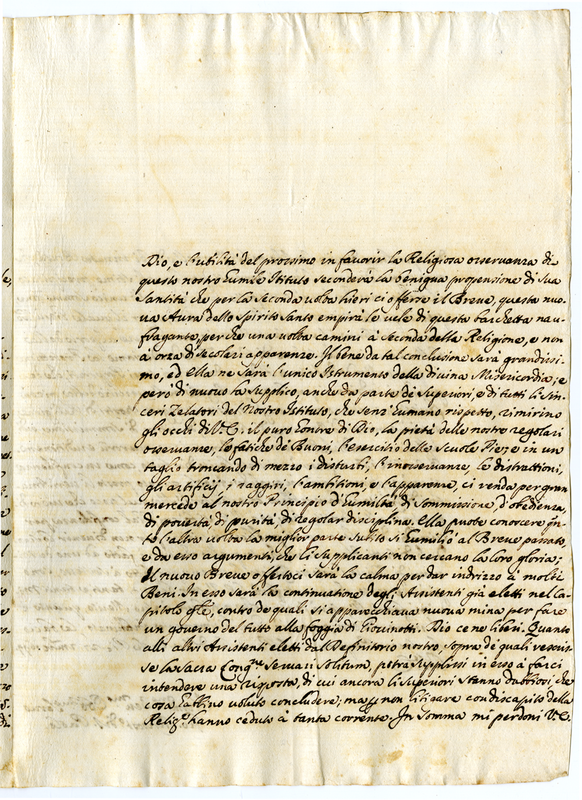 Dio, e l'utilità del prossimo in favorir la Religiosa osservanza di
questo nostro humile Istituto seconderà la benigna propensione di Sua
Santità che per la seconda volta hieri ci offerse il Breve, questa nuo-
va Aura dello Spirito Santo empirà le vele di questa barchetta nau-
fragante, perche una volta camini à seconda della Religione, e non
à orza di secolari apparenze. Il bene da tal conclusione sarà grandissi-
mo, ed ella ne sarà l'unico Istrumento della divina Misericordia; e
però di nuovo la supplico, anche da parte de Superiori, e di tutti li sin-
ceri Zelatori del Nostro Istituto, che senz'humano rispetto, rimirino
gli occhi di V.E. il puro honore di Dio, la pietà delle nostre regolari
osservanze, le fatiche de Buoni, l'esercitio delle Scuole Pie; e in un
taglio troncando di mezzo i disturbi, l'inosservanze, le distrattioni,
gli artificij, i raggiri, l'ambitioni e l'apparenze, ci renda per gran
mercede al nostro Principio d'humiltà, di sommissione, d'obedienza,
di povertà, di purità, di regolar disciplina. Ella puote conoscere in-
to l'altra volta la miglior parte subito si humiliò al Breve passato
e da esso argumenti, che li supplicanti non cercano la loro gloria;
Il nuovo Breve offertoci sarà la calma per dar indrizzo à molti
Beni. In esso sarà la continuatione degli Assistenti già eletti nel Ca-
pitolo gñle, contro de quali si apparecchiava nuova mina per fare
un governo del tutto alla foggia di Giovinotti. Dio ce ne liberi. Quanto
alli altri Assistenti eletti dal Definitorio nostro, sopra de quali rescris-
se la Sacra Congne servari solitum, potrà supplirsi in esso à farci
intendere una risposta, di cui ancora li Superiori stanno dubbiosi, che
cosa habbino voluto concludere; ma non litigare con discapito della
Religne hanno ceduto à tanta corrente. In somma mi perdoni V.E.